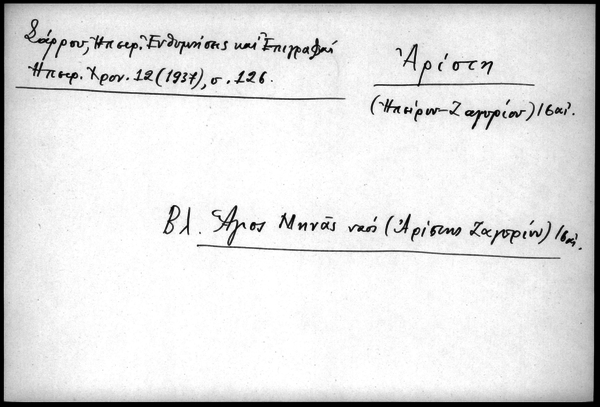 Σάρρου, Ἠπειρ. Ἐνθυμήσεις καὶ Ἐπιγραφαί
Ἠπειρ. Χρον. 12 (1937), σ. 126.
Ἀρίστη
(Ἠπείρου-Ζαγορίου) 16 αἰ.
Βλ. Ἅγιος Μηνᾶς ναός (Ἀρίστης Ζαγορίου) 16 αἰ.